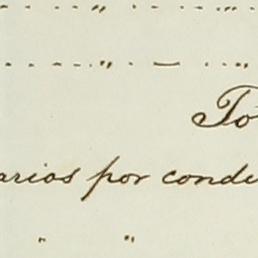 To
arios por condu